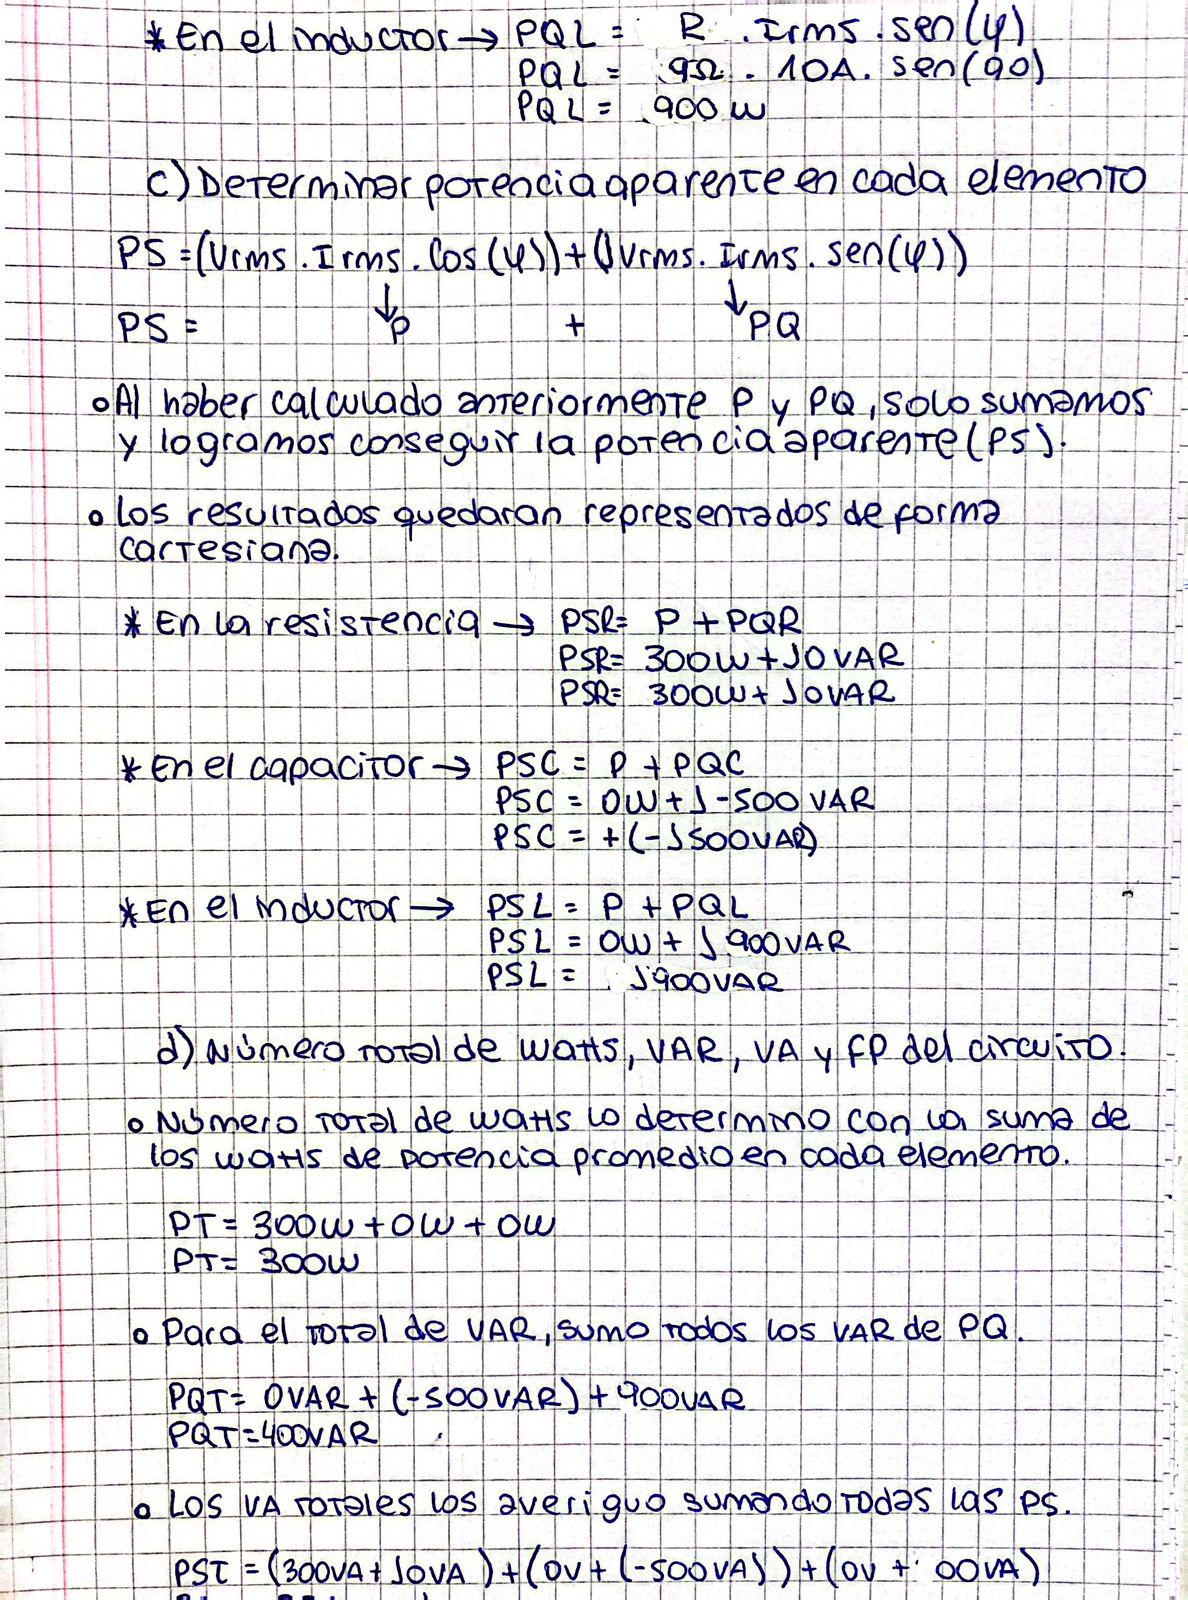 * En el inductor → PQL = R . Irms . sen(φ)
PQL = 9Ω . 10A . sen(90)
PQL = 900 W
c) Determinar potencia aparente en cada elemento
PS = (Vrms . Irms . Cos (φ)) + (JVrms . Irms . sen(φ))
↓ ↓
PS = P + PQ
o Al haber calculado anteriormente P y PQ, solo sumamos
y logramos conseguir la potencia aparente (PS).
o Los resultados quedaran representados de forma
cartesiana.
* En la resistencia → PSR= P + PQR
PSR= 300W + J0VAR
PSR= 300W + J0VAR
* En el capacitor → PSC = P + PQC
PSC = 0W + J -500 VAR
PSC = + (-J500VAR)
* En el inductor → PSL = P + PQL
PSL = 0W + J 900VAR
PSL = J900VAR
d) Número total de watts, VAR, VA y FP del circuito.
o Número total de watts lo determino con la suma de
los watts de potencia promedio en cada elemento.
PT = 300W + 0W + 0W
PT= 300W
o Para el total de VAR, sumo todos los VAR de PQ.
PQT= 0VAR + (-500VAR) + 900VAR
PQT=400VAR
o Los VA totales los averiguo sumando todas las PS.
PST = (300VA + J0VA) + (0V + (-500VA)) + (0V + 00VA)